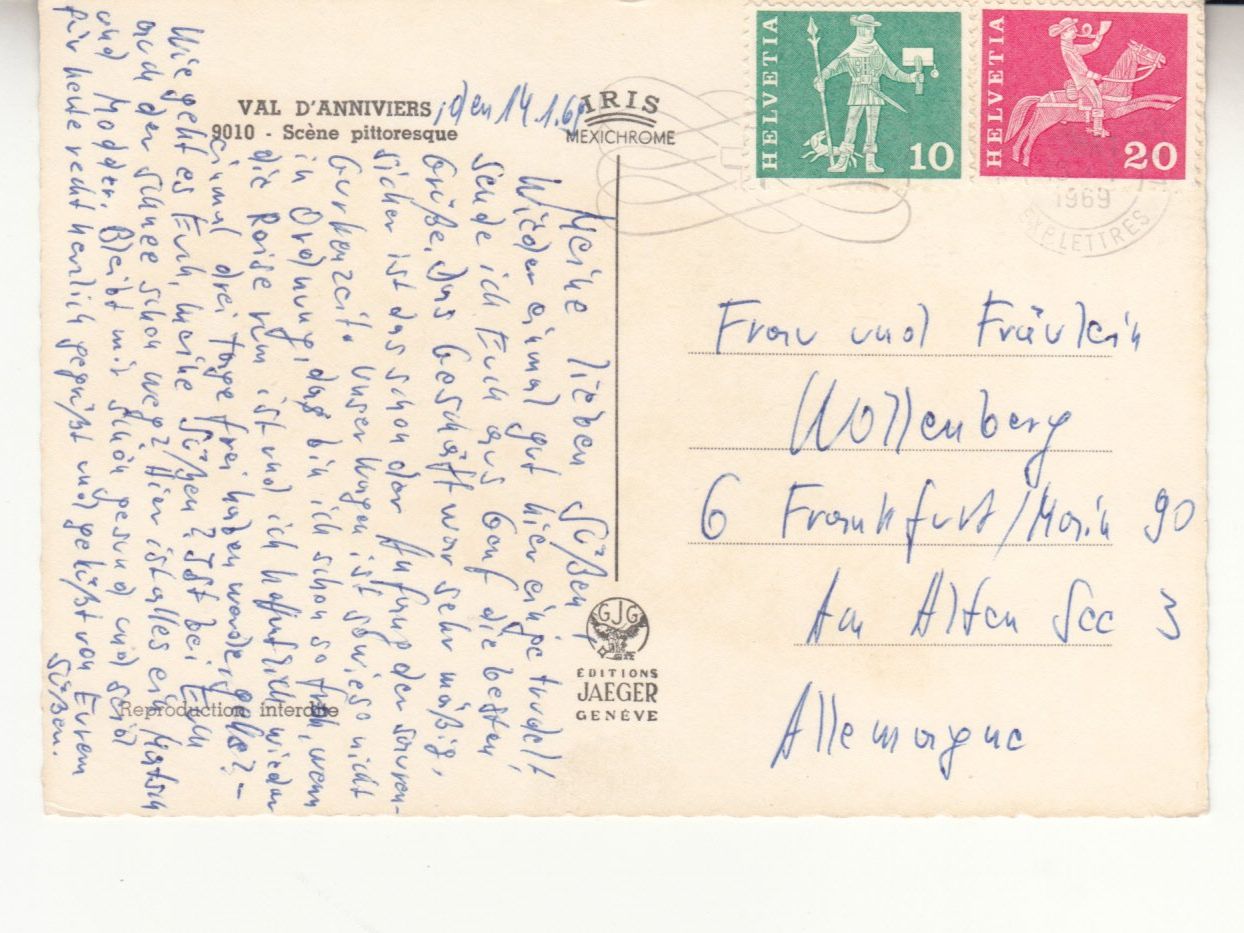 VAL D'ANNIVIERS, den 14.1.69
9010 - Scène pittoresque
IRIS
MEXICHROME
HELVETIA
10
HELVETIA
20
1969
EXP. LETTRES
Meine lieben Süßen,
Wieder einmal gut hier eingetrudelt
sende ich Euch aus Genf die besten
Grüße. Das Geschäft war sehr mäßig,
sicher ist das schon der Anfang der sauren-
Gurkenzeit. Unser Wagen ist sowieso nicht
in Ordnung, da bin ich schon so froh, wenn
die Reise rum ist und ich hoffentlich wieder
einmal drei Tage frei haben werde, gelle? -
Wie geht es Euch, meine Süßen? Ist bei Euch
auch der Schnee schon weg? Hier ist alles ein Matsch
und Modder. Bleibt mir schön gesund und seid
für heute recht herzlich gegrüßt und geküßt von Eurem
Süßen.
Frau und Fräulein
Wollenberg
6 Frankfurt/Main 90
Am Alten See 3
Allemagne
GJG
ÉDITIONS
JAEGER
GENÈVE
Reproduction interdite